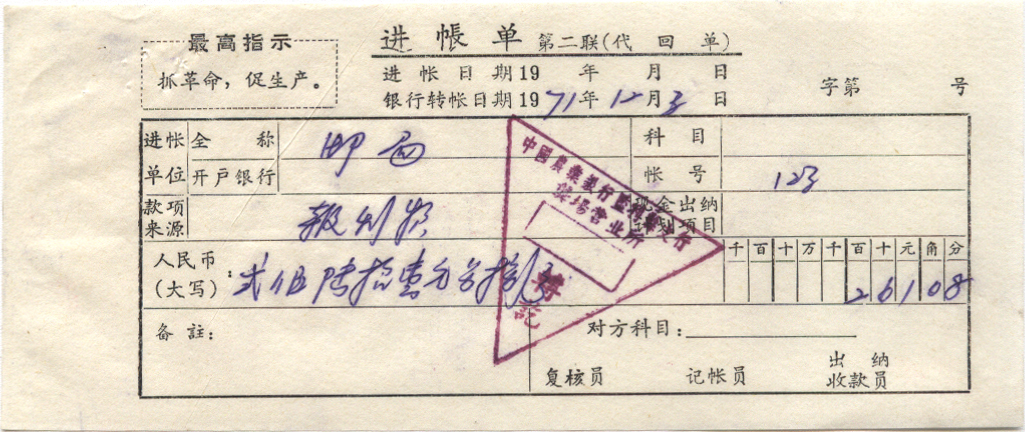 最高指示
抓革命，促生产。
进帐单 第二联(代回单)
进帐日期19 年 月 日
银行转帐日期1971年12月3日
字第 号
进帐单位 全称 邮局 科目
开户银行 帐号 123
款项来源 报刊费 现金出纳计划项目
人民币(大写)：弍佰陆拾壹元
千百十万千百十元角分
26108
转讫
中國農業銀行
营业所
备註：
对方科目：
复核员 记帐员 出纳收款员